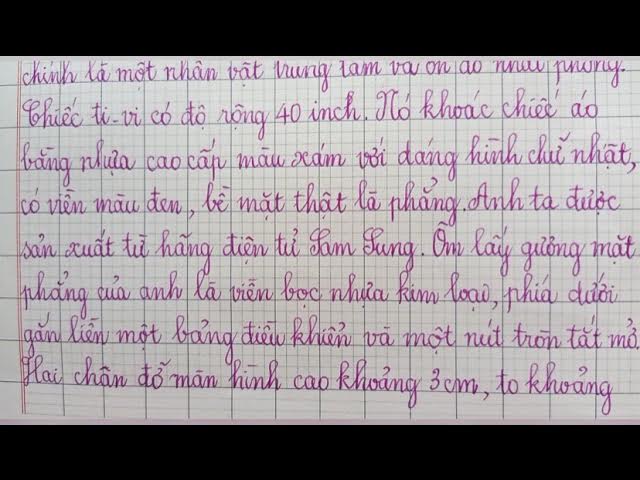 chính là một nhân vật trung tâm và ồn ào nhất phòng.
Chiếc ti-vi có độ rộng 40 inch. Nó khoác chiếc áo
bằng nhựa cao cấp màu xám với dáng hình chữ nhật,
có viền màu đen, bề mặt thật là phẳng. Anh ta được
sản xuất từ hãng điện tử Sam Sung. Ôm lấy gương mặt
phẳng của anh là viền bọc nhựa kim loại, phía dưới
gắn liền một bảng điều khiển và một nút tròn tắt mở.
Hai chân đỡ màn hình cao khoảng 3cm, to khoảng